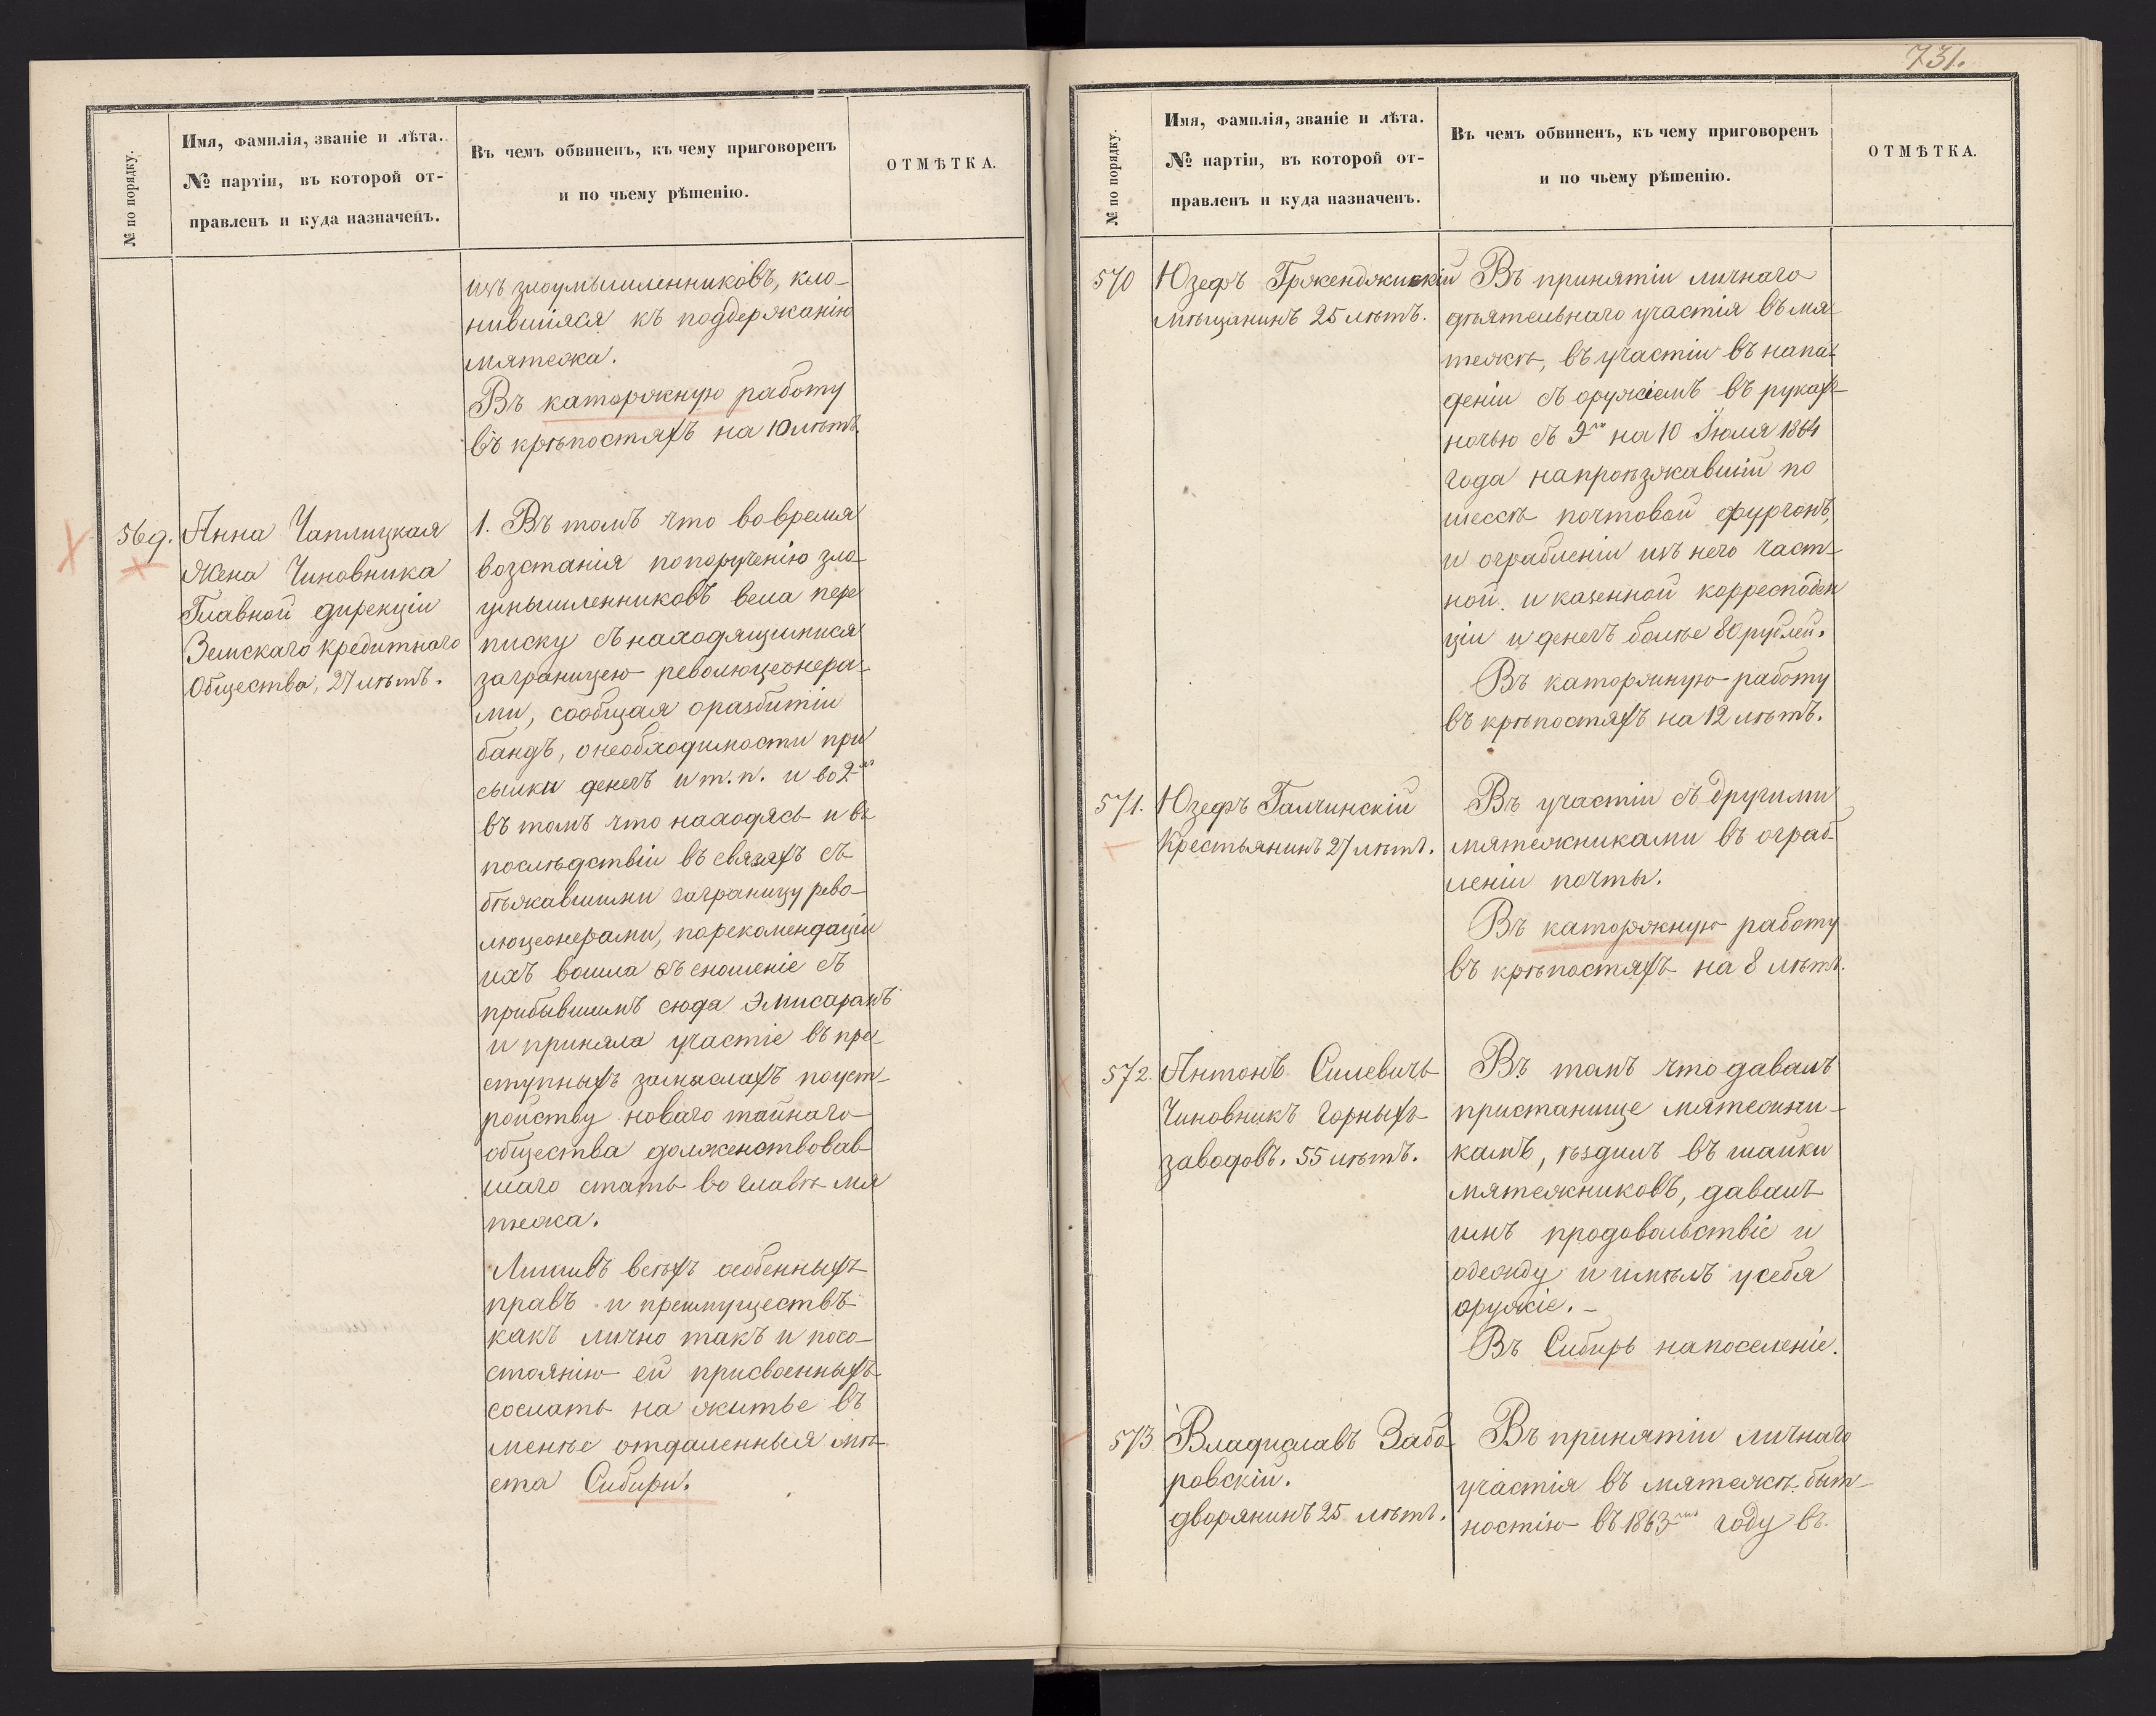 № по порядку.
Имя, фамилія, званіе и лѣта.
№ партіи, въ которой от-
правленъ и куда назначенъ.
Въ чемъ обвиненъ, къ чему приговоренъ
и по чьему рѣшенію.
ОТМѢТКА.
изъ злоумышленниковъ, кло-
нившіяся къ поддержанію
мятежа.
Въ каторжную работу
въ крѣпостяхъ на 10 лѣтъ.
569. Анна Чаплицкая
Жена Чиновника
Главной дирекціи
Земскаго кредитнаго
Общества, 27 лѣтъ.
1. Въ томъ что во время
возстанія по порученію зло-
умышленниковъ вела пере
писку съ находящимися
заграницею революціонера-
ми, сообщая о разбитіи
бандъ, о необходимости при
сылки денегъ и т. п. и во 2-хъ
въ томъ что находясь и въ
послѣдствіи въ связяхъ съ
бѣжавшими заграницу рево-
люціонерами, по рекомендаціи
ихъ вошла въ сношеніе съ
прибывшимъ сюда Эмисаромъ
и приняла участіе въ пре-
ступныхъ замыслахъ по уст-
ройству новаго тайнаго
общества долженствовав-
шаго стать во главѣ мя
тежа.
Лишивъ всѣхъ особенныхъ
правъ и преимуществъ
какъ лично такъ и по со-
стоянію ей присвоенныхъ
сослать на житье въ
менѣе отдаленныя мѣ-
ста Сибири.
731.
№ по порядку.
Имя, фамилія, званіе и лѣта.
№ партіи, въ которой от-
правленъ и куда назначенъ.
Въ чемъ обвиненъ, къ чему приговоренъ
и по чьему рѣшенію.
ОТМѢТКА.
570 Юзефъ Грженджинскій
Мѣщанинъ 25 лѣтъ.
Въ принятіи личнаго
дѣятельнаго участія въ мя-
тежѣ, въ участіи въ напа-
деніи съ оружіемъ въ рукахъ
ночью съ 9го на 10 Іюля 1864
года на проѣзжавшій по
шоссе почтовой фургонъ,
и ограбленіи изъ него част-
ной и казенной корресподен
ціи и денегъ болѣе 80 рублей.
Въ каторжную работу
въ крѣпостяхъ на 12 лѣтъ.
571. Юзефъ Галчинскій
Крестьянинъ 27 лѣтъ.
Въ участіи съ другими
мятежниками въ ограб-
леніи почты.
Въ каторжную работу
въ крѣпостяхъ на 8 лѣтъ.
572. Антонъ Силевичъ
Чиновникъ горныхъ
заводовъ. 55 лѣтъ.
Въ томъ что давалъ
пристанище мятежни-
камъ, ѣздилъ въ шайки
мятежниковъ, давалъ
имъ продовольствіе и
одежду и имѣлъ у себя
оружіе. -
Въ Сибирь на поселеніе.
573. Владиславъ Забо-
ровскій.
дворянинъ 25 лѣтъ.
Въ принятіи личнаго
участія въ мятежѣ быт-
ностію въ 1863мъ году въ